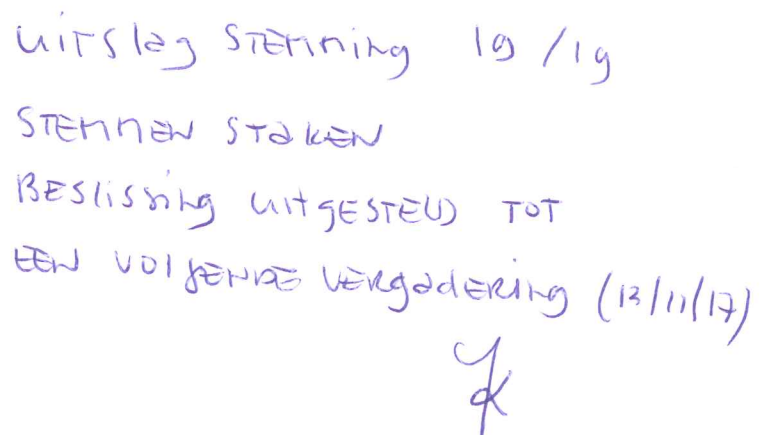 uitslag stemming 19/19
stemmen staken
Beslissing uitgesteld tot
een volgende vergadering (13/11/17)